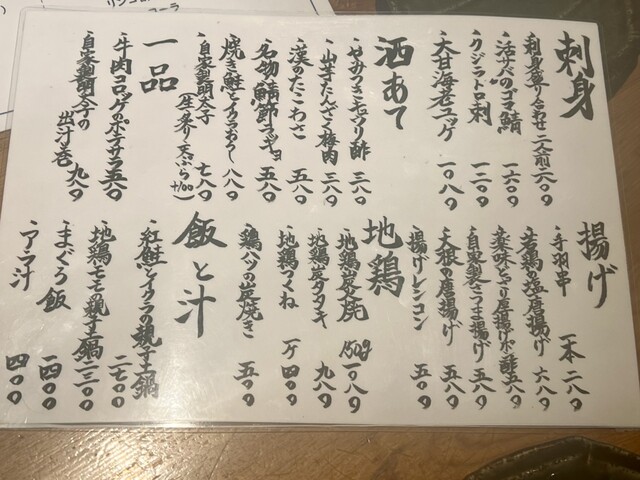 刺身
・刺身盛り合わせ 二人前 二六〇〇
・活サバのゴマ鯖 一六〇〇
・クジラトロ刺 一二〇〇
・大甘海老ユッケ 一〇八〇
酒あて
・やみつきモツ酢 三八〇
・山芋たんざく梅肉 三八〇
・漢のたこわさ 五八〇
・名物鯖節マヨ 五八〇
・焼き鮭とイクラおろし 八八〇
・自家製明太子 七八〇
(生、炙り、天ぷら+100)
一品
・牛肉コロッケのポテサラ 五八〇
・自家製明太子の出汁巻 九八〇
揚げ
・手羽串 一本 二八〇
・若鶏の塩唐揚げ 六八〇
・薬味どっさり唐揚げポン酢 五八〇
・自家製さつま揚げ 五八〇
・大根の唐揚げ 五八〇
・揚げレンコン 五〇〇
地鶏
・地鶏炭火焼 150g 一〇八〇
・地鶏炭タタキ 九八〇
・地鶏つくね 一ケ 四〇〇
・鶏ハツの炭焼き 五〇〇
飯と汁
・紅鮭とイクラの親子土鍋 二七〇〇
・地鶏モモの親子土鍋 二三〇〇
・まぐろ飯 一四〇〇
・アラ汁 四〇〇